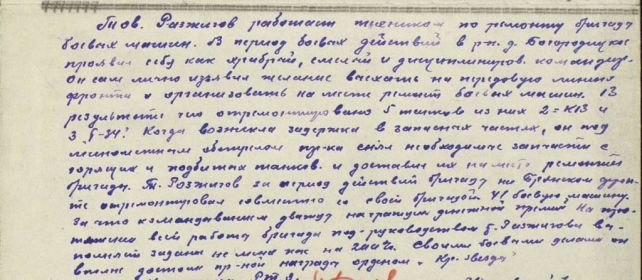 Тов. Разжигов работает техником по ремонту бригады
боевых машин. В период боевых действий в р-не д. Богородицкое
проявил себя как храбрый, смелый и дисциплиниров. командир.
Он сам лично изъявил желание выехать на передовую линию
фронта и организовать на месте ремонт боевых машин. В
результате чего отремонтировано 5 танков из них 2 = КВ и
3 Т-34. Когда возникла задержка в запасных частях, он под
минометным обстрелом пр-ка снял необходимые запчасти с
горящих и подбитых танков и доставил их на место ремонтн
бригады. Т. Разжигов за период действий бригады на Брянском фрон-
те отремонтировал совместно со своей бригадой 41 боевую машину.
За что командованием дважды награжден денежной премией. На про-
тяжении всей работы бригада под руководством т. Разжигова вы-
полняет задание не менее как на 200%. Своими боевыми делами он
вполне достоин пр-ной награды орденом "Кр. Звезда"